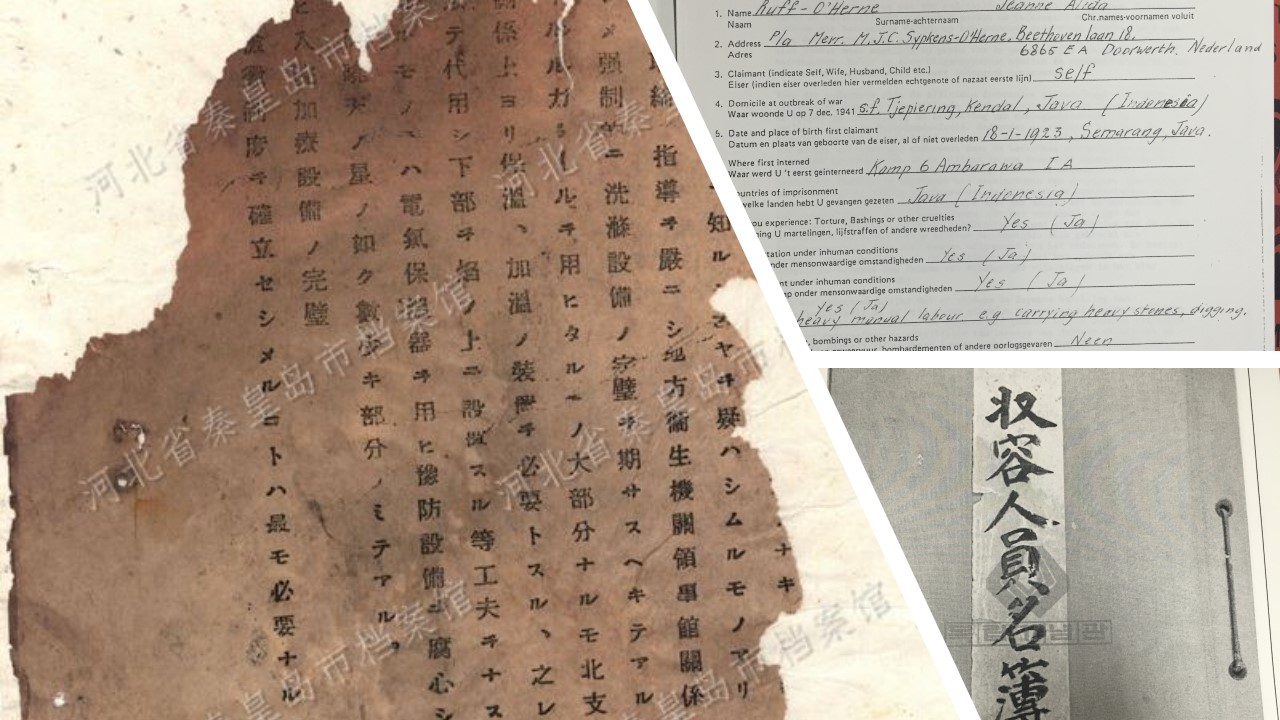 ナキ
知ル
ヤヲ疑ハシムルモノアリ
指導ヲ嚴ニシ地方衞生機關領事館關係
メ强制的ニ洗滌設備ノ完璧ヲ期サスヘキテアル
ルヲ用ヒタルモノ大部分ナルモ北支
關係上ヨリ保溫、加溫ノ裝置ヲ必要トスル、之レ
テ代用シ下部ヲ焰ノ上ニ設置スル等工夫ヲナス
モノハ電氣保溫器ヲ用ヒ豫防設備ニ腐心シ
天ノ星ノ如ク數少キ部分ノミテアル。
加療設備ノ完璧
制度ヲ確立セシメルコトハ最モ必要ナル
河北省秦皇岛市档案馆
河北省秦皇岛市档案馆
河北省秦皇岛市档案馆
1. Name Ruff - O'Herne Jeanne Alida
Naam Surname-achternaam Chr.names-voornamen voluit
2. Address P/a Mevr. M.J.C. Sypkens-O'Herne, Beethovenlaan 18.
Adres 6865 EA Doorwerth. Nederland
3. Claimant (indicate Self, Wife, Husband, Child etc.)
Eiser (indien eiser overleden hier vermelden echtgenote of nazaat eerste lijn) self
4. Domicile at outbreak of war
Waar woonde U op 7 dec. 1941 s.f. Tjepiering, Kendal, Java (Indonesia)
5. Date and place of birth first claimant
Datum en plaats van geboorte van de eiser, al of niet overleden 18-1-1923, Semarang, Java.
Where first interned
Waar werd U 't eerst geinterneerd Kamp 6 Ambarawa IA
ountries of imprisonment
welke landen hebt U gevangen gezeten Java (Indonesia)
you experience: Torture, Bashings or other cruelties
ing U martelingen, lijfstraffen of andere wreedheden? Yes (Ja)
tation under inhuman conditions
nder mensonwaardige omstandigheden Yes (Ja)
nt under inhuman conditions
p onder mensonwaardige omstandigheden Yes (Ja)
Yes (Ja)
heavy manual labour e.g. carrying heavy stones, digging.
, bombings or other hazards
bombardementen of andere oorlogsgevaren Neen
収容人員名簿